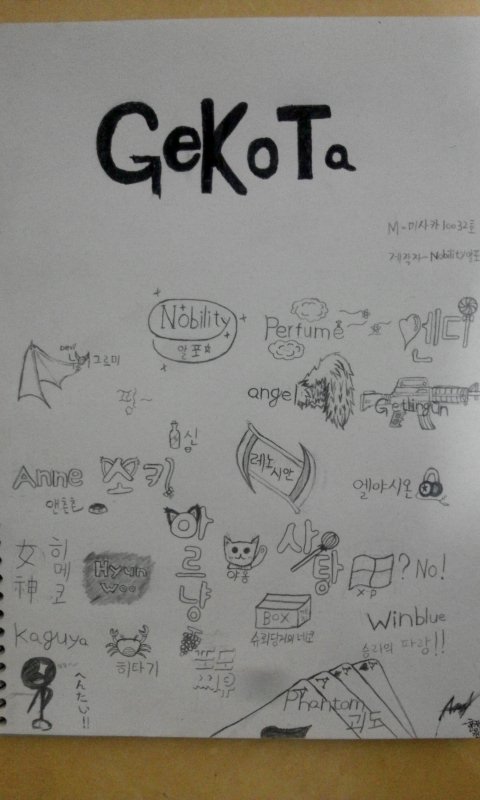 GeKoTa
M-미사카10032호
제작자-Nobility알포
Nobility
알포
Perfume
캔디
Devil
그르미
핑~
angel
Getlingun
심
Anne
쪼키
앤촌촌
레노
시안
엘야시온
女神
히메코
Hyun
Woo
아르냥
야옹
사탕
XP
? No!
BOX
슈뢰딩거의네코
Winblue
승리의 파랑!!
Kaguya
히타기
へんたい!!
Phantom
괴도